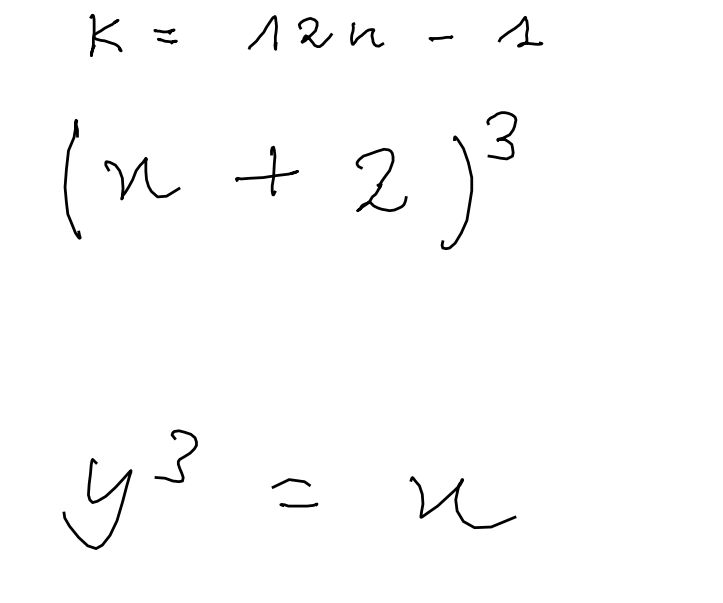 K = 12n - 1
(n + 2)³
y³ = n